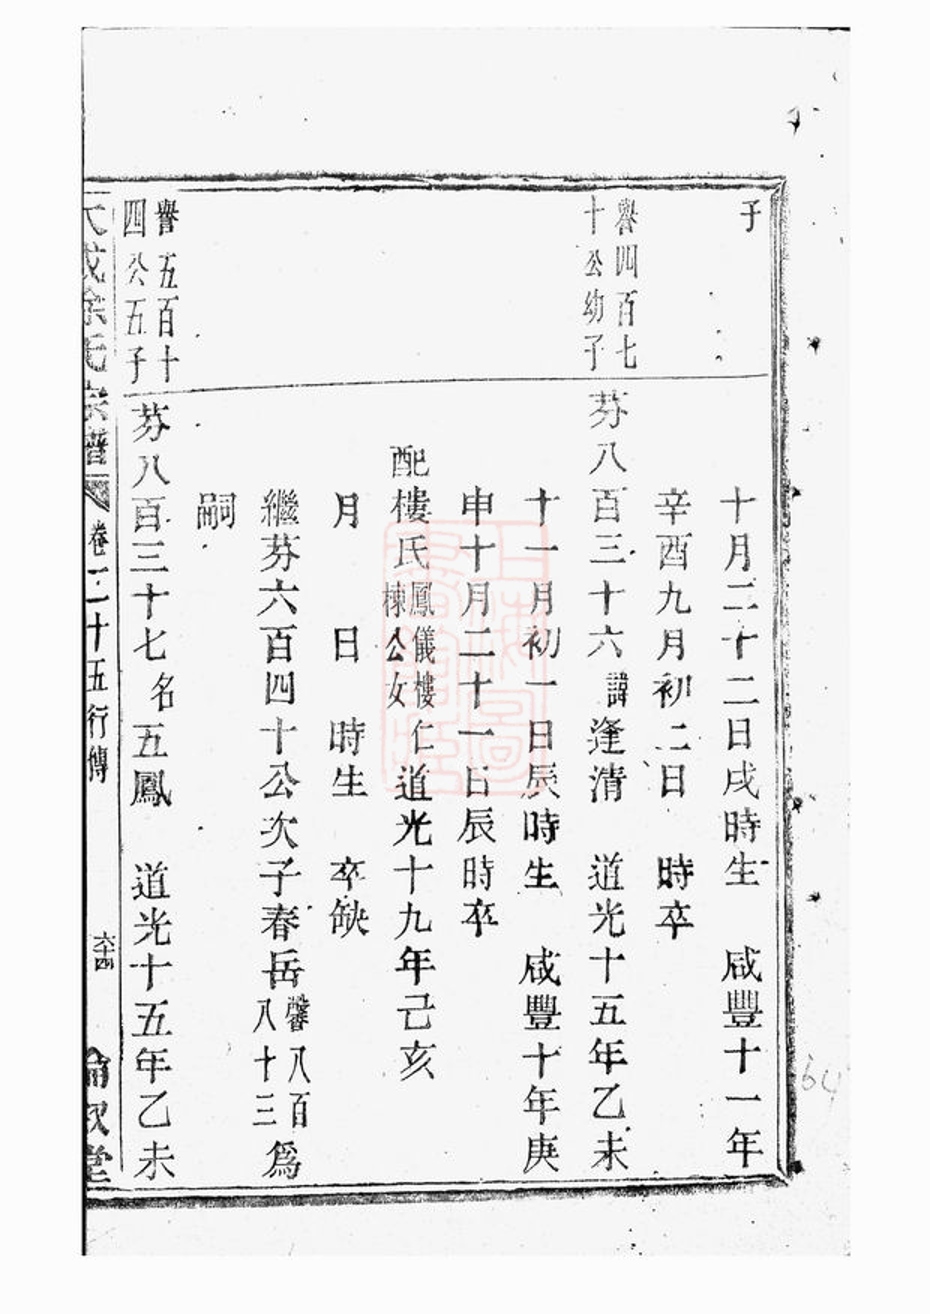 子
十月二十二日戌時生　咸豐十一年
辛酉九月初二日　時卒
譽四百七
十公幼子
芬八百三十六諱逢清　道光十五年乙未
十一月初一日辰時生　咸豐十年庚
申十月二十一日辰時卒
配樓氏鳳儀樓棟公女仁道光十九年己亥
月　日　時生　卒缺
繼芬六百四十公次子春岳馨八百八十三爲
嗣
譽五百十
四公五子
芬八百三十七名五鳳　道光十五年乙未
氏宗譜　卷二十五行傳　六十四　倫敘堂